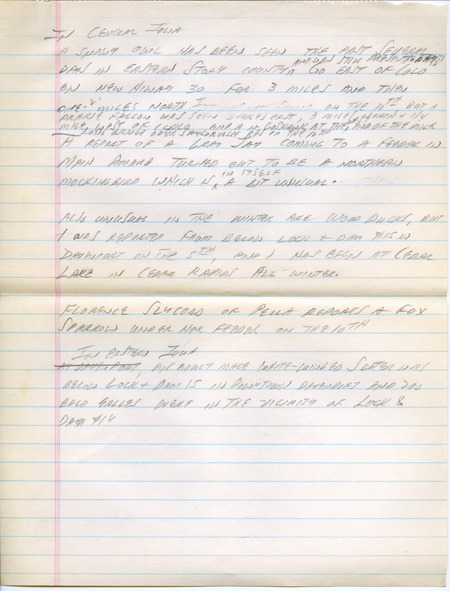 IN CENTRAL IOWA
A SNOWY OWL HAS BEEN SEEN THE PAST SEVERAL
DAYS IN EASTERN STORY COUNTY, AND WAS STILL PRESENT TODAY GO EAST OF COLO
ON NEW HIWAY 30 FOR 3 MILES AND THEN
ONE MILES NORTH ON THE 10TH BUT A
PRARIE FALCON WAS SEEN 3 MILES NORTH & 1/4
MILE WEST OF COLO AND
A REPORT OF A GRAY JAY COMING TO A FEEDER IN
MAIN AMANA TURNED OUT TO BE A NORTHERN
MOCKINGBIRD WHICH IS IN ITSELF A BIT UNUSUAL.
ALSO UNUSUAL IN THE WINTER ARE WOOD DUCKS, BUT
1 WAS REPORTED FROM BELOW LOCK & DAM 15 IN
DAVENPORT ON THE 5TH, AND 1 HAS BEEN AT CEDAR
LAKE IN CEDAR RAPIDS ALL WINTER.
FLORENCE SLYCORD OF PELLA REPORTS A FOX
SPARROW UNDER HOR FEEDER ON THE 10TH
IN EASTERN IOWA
AT DAVENPORT, AN ADULT MALE WHITE-WINGED SCOTER WAS
BELOW LOCK & DAM 15 IN DOWNTOWN DAVENPORT AND 200
BALD EAGLES WERE IN THE VICINITY OF LOCK &
DAM #14